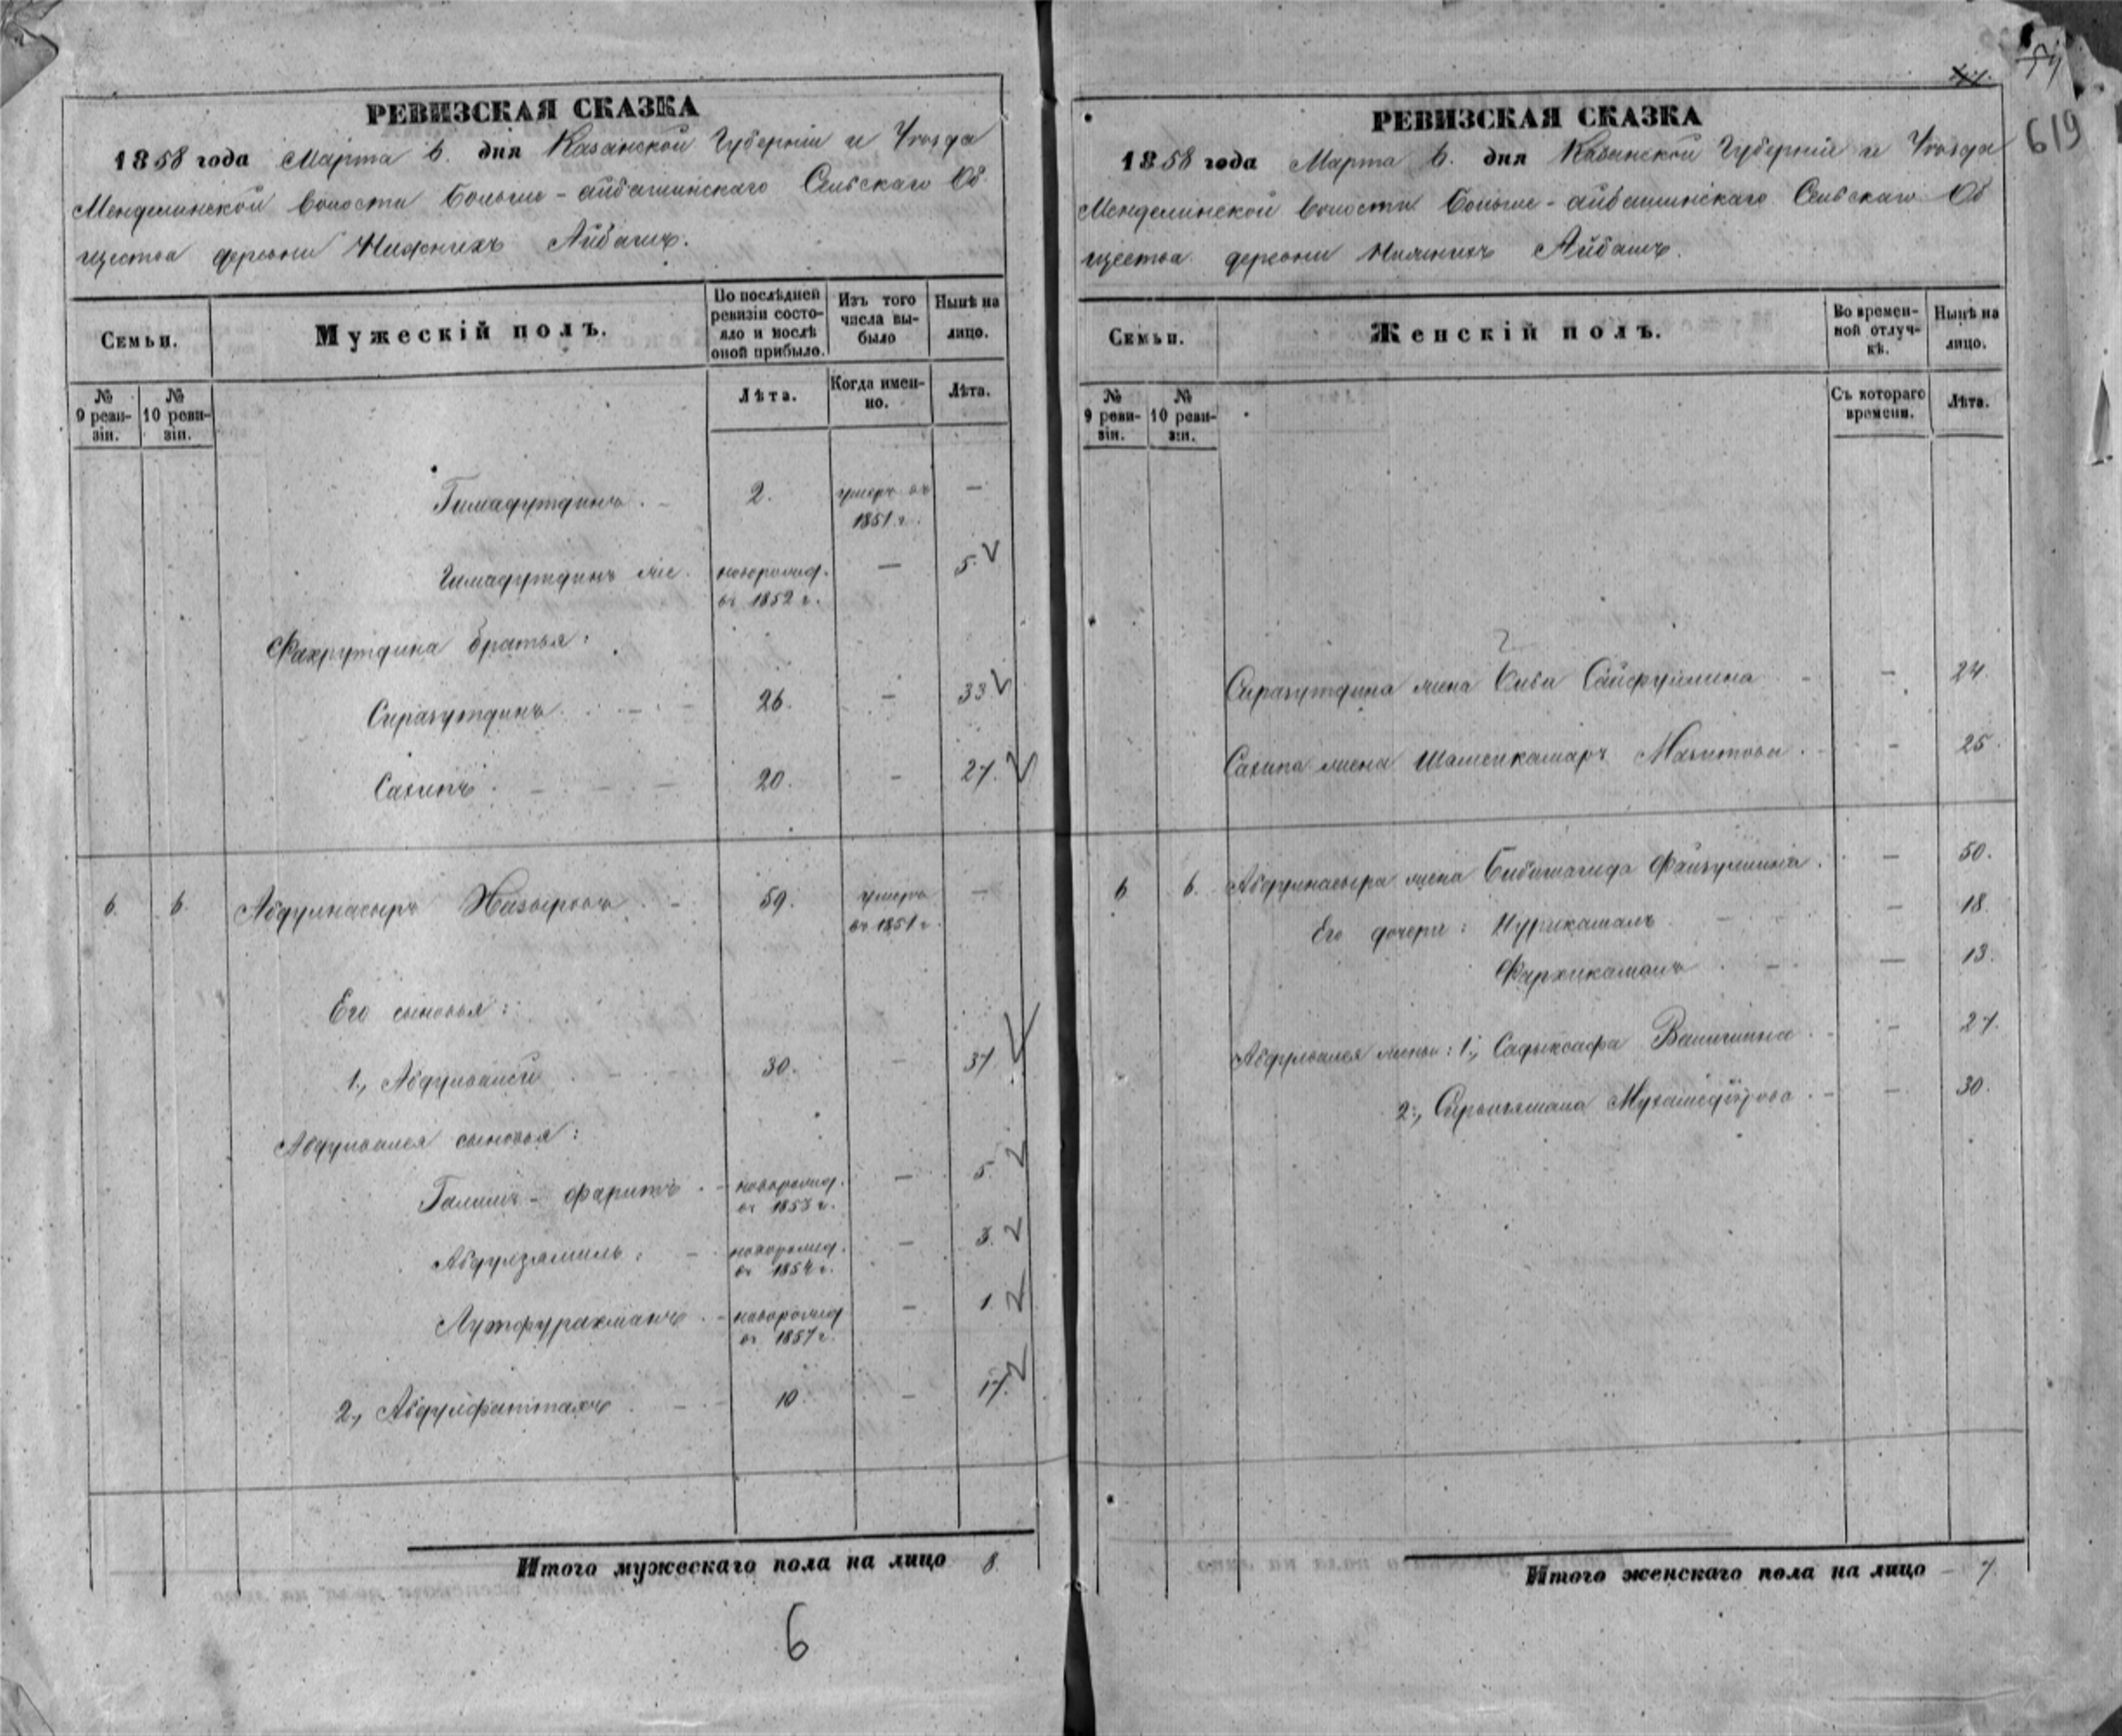 РЕВИЗСКАЯ СКАЗКА
1858 года Марта 6. дня Казанской Губерніи и Уѣзда
Менделинской волости Больше-айбашинскаго Сельскаго Об
щества деревни Нижнихъ Айбашъ.
Семьи.
Мужескій полъ.
По послѣдней ревизіи состояло и послѣ оной прибыло.
Изъ того числа выбыло
Нынѣ на лицо.
№ 9 ревизіи.
№ 10 ревизіи.
Лѣта.
Когда именно.
Лѣта.
Гимадутдинъ. - 2. умеръ въ 1851 г. —
Гимадутдинъ новорожд. въ 1852 г. — 5.
Фахрутдина братья:
Сиразутдинъ 26. — 33
Сахипъ 20. — 27.
6. 6. Абдулнасыръ Назыровъ 59. умеръ въ 1851 г. —
Его сыновья:
1., Абдулвалей 30. — 37
Абдулвалея сыновья:
Галимъ-фаритъ новорожд. въ 1853 г. — 5.
Абдулзямиль новорожд. въ 1854 г. — 3.
Лутфурахманъ новорожд въ 1857 г. — 1.
2., Абдулфаттахъ 10. — 17.
Итого мужескаго пола на лицо 8
6
619
РЕВИЗСКАЯ СКАЗКА
1858 года Марта 6. дня Казанской Губерніи и Уѣзда
Менделинской волости Больше-айбашинскаго Сельскаго Об
щества деревни Нижнихъ Айбашъ.
Семьи.
Женскій полъ.
Во временной отлучкѣ.
Нынѣ на лицо.
№ 9 ревизіи.
№ 10 ревизіи.
Съ котораго времени.
Лѣта.
Сиразутдина жена Сайфуллина — 24.
Сахипа жена Шамсикамаръ Мазитова — 25.
6 6. Абдулнасыра жена Бибишагида Файзуллина — 50.
Его дочери: Нурикамалъ — 18.
Фархикамалъ — 13.
Абдулвалея жены: 1., Валишина — 27.
2., — 30.
Итого женскаго пола на лицо - 7.